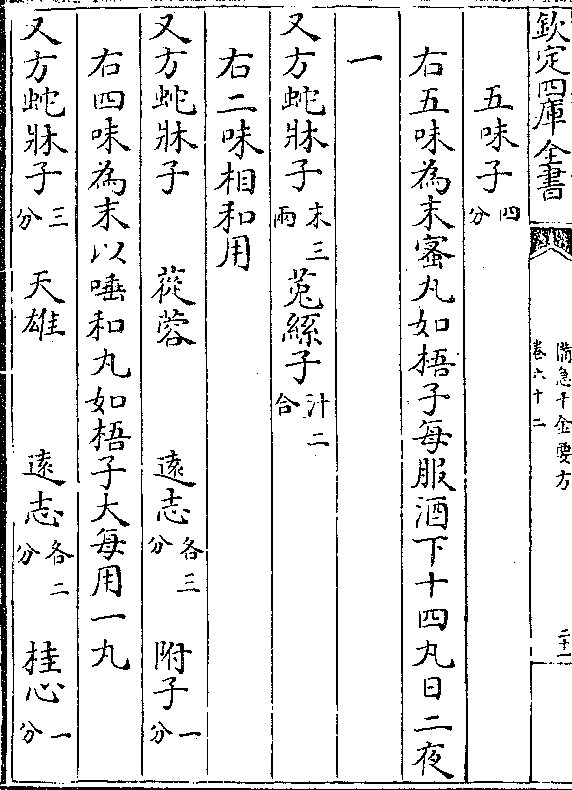 欽定四庫全書
備急千金要方
卷六十二
二十一
五味子四分
右五味為末蜜丸如梧子每服酒下十四丸日二夜
一
又方蛇牀子末三兩 菟絲子汁二合
右二味相和用
又方蛇牀子 蓯蓉 遠志各三分 附子一分
右四味為末以唾和丸如梧子大每用一丸
又方蛇牀子三分 天雄 遠志各二分 桂心一分